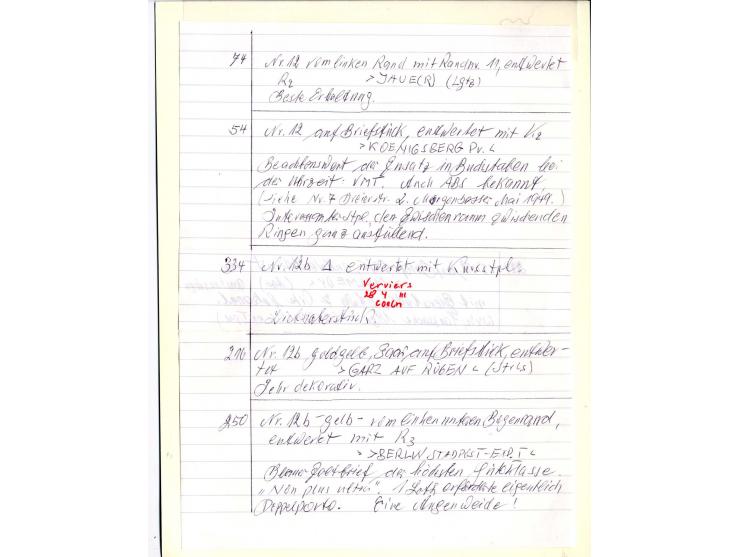 74 Nr. 12 vom linken Rand mit Randnr. 11, entwertet
R2 >JAUE(R) (Lgtz)
Beste Erhaltung.
54 Nr. 12 auf Briefstück, entwertet mit K2
>KOENIGSBERG Pr.<
Beachtenswert der Einsatz in Buchstaben bei
der Uhrzeit VMT. Auch ABS bekannt,
(siehe Nr. 7 2. Mai 1949.)
den Zwischenraum zwischen den
Ringen ganz ausfüllend.
334 Nr. 12b Δ entwertet mit Kursstpl.
Verviers
28 4 III
COELN
216 Nr. 12b goldgelb, auf Briefstück, entwer-
tet >GARZ AUF RÜGEN< (Strls)
Sehr dekorativ.
250 Nr. 12b -gelb- vom linken unteren Bogenrand,
entwertet mit R3
>BERLIN STADTPOST-EXP. I<
der höchsten
"Non plus ultra". 1 Loth erforderte eigentlich
Doppelporto. Eine Augenweide!